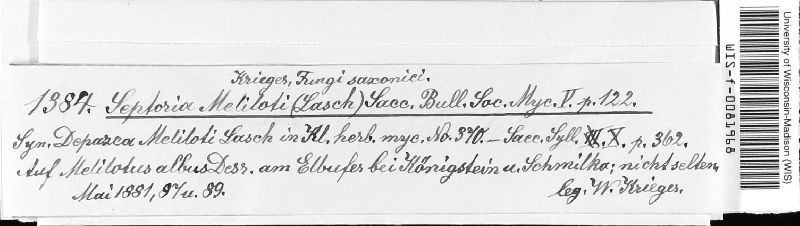 Krieger, Fungi saxonici.
1384. Septoria Meliloti (Lasch) Sacc. Bull. Soc. Myc. V. p. 122.
Syn. Depazea Meliloti Lasch in Kl. herb. myc. No. 370. — Sacc. Syll. X. p. 362.
Auf Melilotus albus Desr. am Elbufer bei Königstein u. Schmilka; nicht selten.
Mai 1881, 87 u. 89.
leg. W. Krieger.
University of Wisconsin-Madison (WIS)
WIS-f-0081968